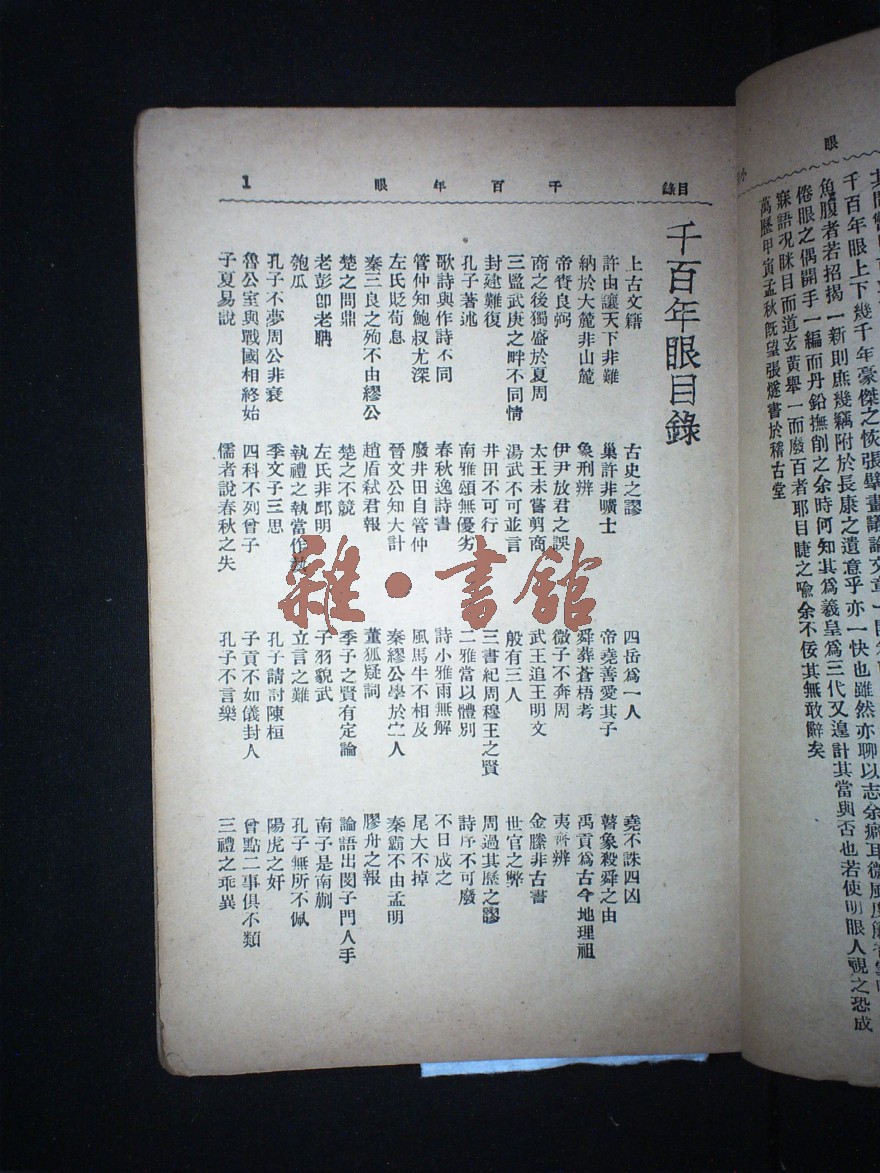 眼
千百年眼上下幾千年豪傑之恢張擘畫議論文章一開
魚腹者若招揭一新則庶幾竊附於長康之遺意乎亦一快也雖然亦聊以志余癖耳微風度簾香雲
倦眼之偶開手一編而丹鉛撫削之余時何知其爲羲皇爲三代又遑計其當與否也若使明眼人視之恐成
寐語况眯目而道玄黃舉一而廢百者耶目睫之喩余不佞其無敢辭矣
萬歷甲寅孟秋旣望張燧書於稽古堂
目錄 千百年眼 1
千百年眼目錄
上古文籍 古史之謬 四岳爲一人 堯不誅四凶
許由讓天下非難 巢許非曠士 帝堯善愛其子 瞽象殺舜之由
納於大麓非山麓 象刑辨 舜葬蒼梧考 禹貢爲古今地理祖
帝賚良弼 伊尹放君之誤 微子不奔周 夷齊辨
商之後獨盛於夏周 太王未嘗剪商 武王追王明文 金縢非古書
三監武庚之畔不同情 湯武不可並言 般有三人 世官之弊
封建難復 井田不可行 三書紀周穆王之賢 周過其歷之謬
孔子著述 南雅頌無優劣 二雅當以體別 詩序不可廢
歌詩與作詩不同 春秋逸詩書 詩小雅雨無解 不日成之
管仲知鮑叔尤深 廢井田自管仲 風馬牛不相及 尾大不掉
左氏貶荀息 晉文公知大計 秦繆公學於宀人 秦霸不由孟明
秦三良之殉不由繆公 趙盾弒君報 董狐疑詞 膠舟之報
楚之問鼎 楚之不競 季子之賢有定論 論語出閔子門人手
老彭卽老聃 左氏非邱明 子羽貌武 南子是南蒯
匏瓜 執禮之執當作埶 立言之難 孔子無所不佩
孔子不夢周公非衰 季文子三思 孔子請討陳桓 陽虎之奸
魯公室與戰國相終始 四科不列曾子 子貢不如儀封人 曾點二事俱不類
子夏易說 儒者說春秋之失 孔子不言樂 三禮之乖異
雜·書舘